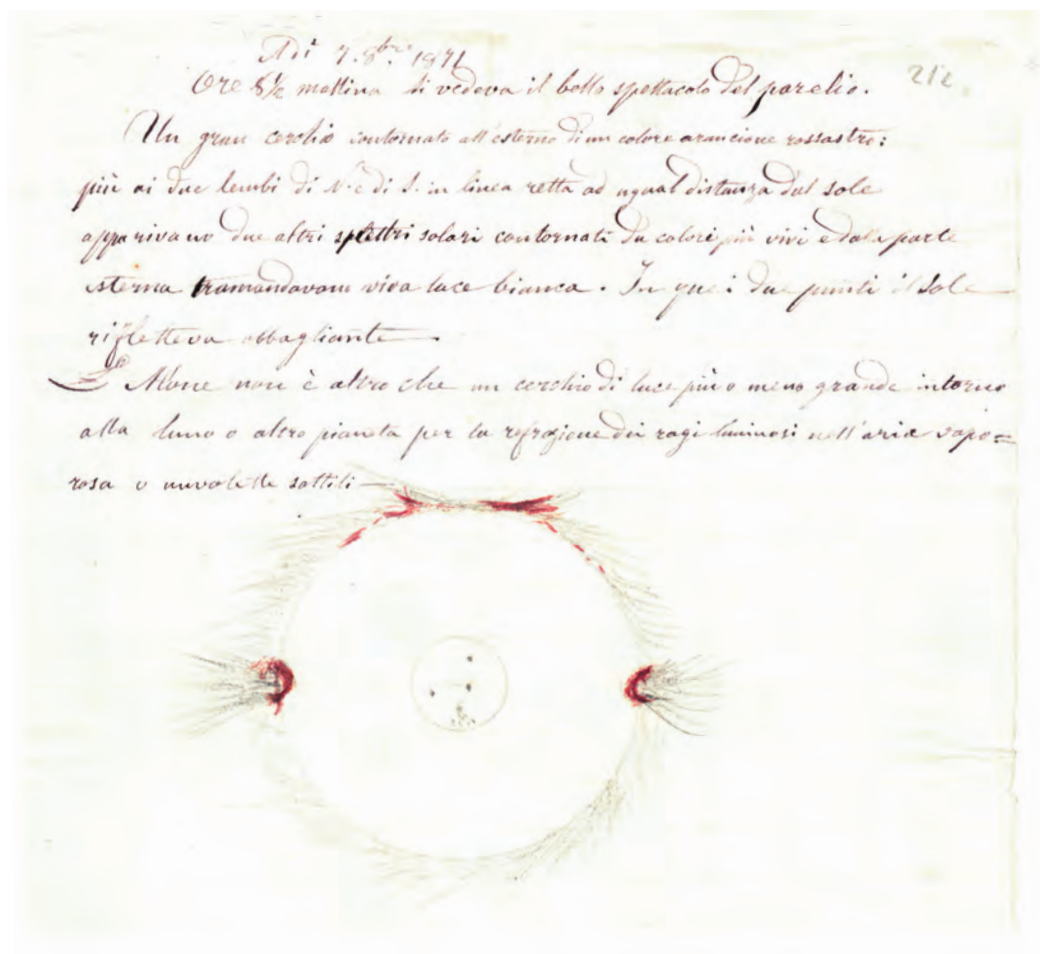 Adì 7. 8bre 1871
212
Ore 8½ mattina si vedeva il bello spettacolo del parelio.
Un gran cerchio contornato all'esterno di un colore arancione rossastro:
più ai due lembi di N. e di S. in linea retta ad ugual distanza dal sole
apparivano due altri spettri solari contornati da colori più vivi e dala parte
sterna tramandavono viva luce bianca. In quei due punti il Sole
rifletteva abbagliante
L'Alone non è altro che un cerchio di luce più o meno grande intorno
alla luna o altro pianeta per la refrazione dei ragi luminosi nell'aria vapo=
rosa o nuvolette sottili